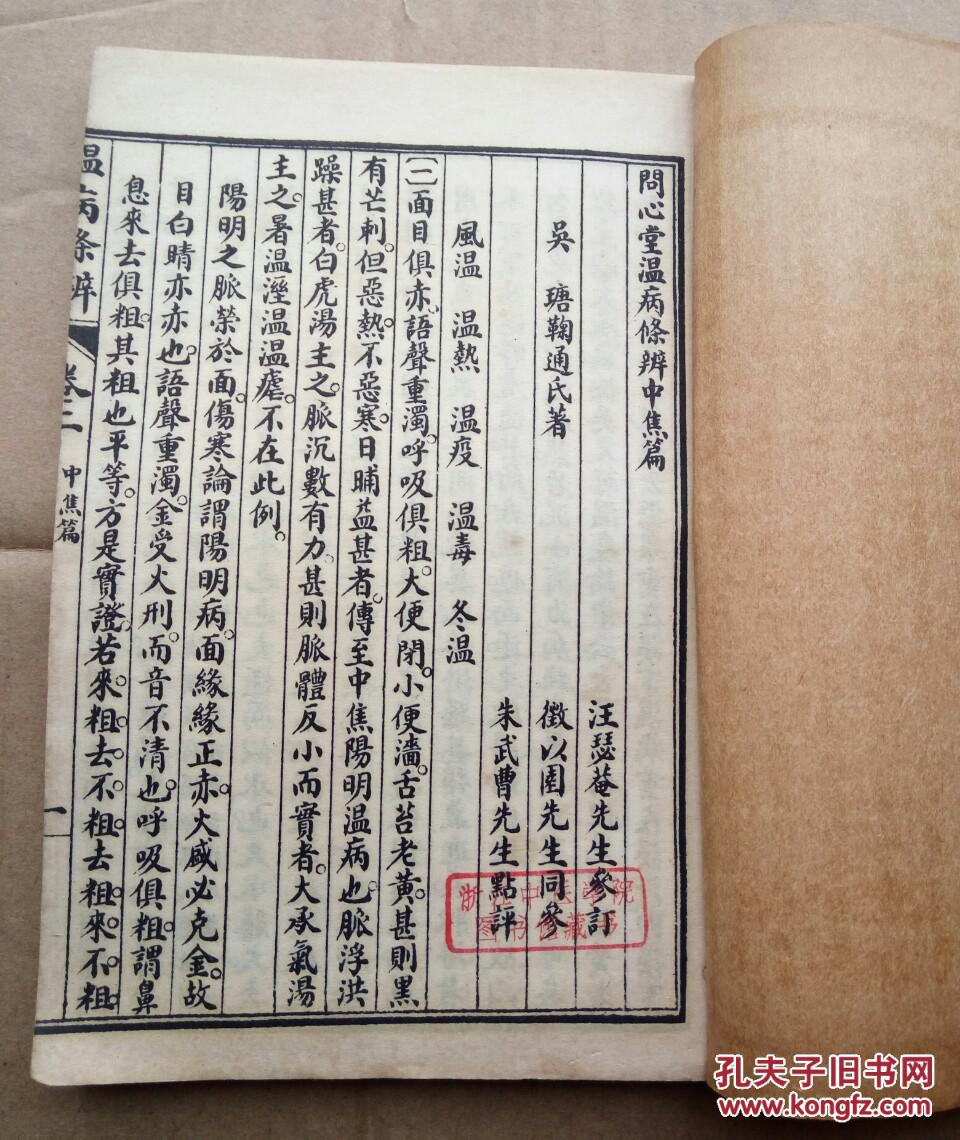 問心堂温病條辨中焦篇
汪瑟菴先生參訂
吳 瑭鞠通氏著 徵以園先生同參
朱武曹先生點評
風温 温熱 温疫 温毒 冬温
(一)面目俱赤。語聲重濁。呼吸俱粗。大便閉。小便濇。舌苔老黃。甚則黑
有芒刺。但惡熱。不惡寒。日晡益甚者。傳至中焦陽明温病也。脈浮洪
躁甚者。白虎湯主之。脈沉數有力。甚則脈體反小而實者。大承氣湯
主之。暑温溼温温瘧。不在此例。
陽明之脈榮於面。傷寒論謂陽明病。面緣緣正赤。火盛必克金。故
目白睛亦赤也。語聲重濁。金受火刑。而音不清也。呼吸俱粗。謂鼻
息來去俱粗。其粗也平等。方是實證。若來粗去不粗。去粗來不粗
温病条辨 卷二 中焦篇 一
浙江中医学院
图书馆藏书
孔夫子旧书网
www.kongfz.com